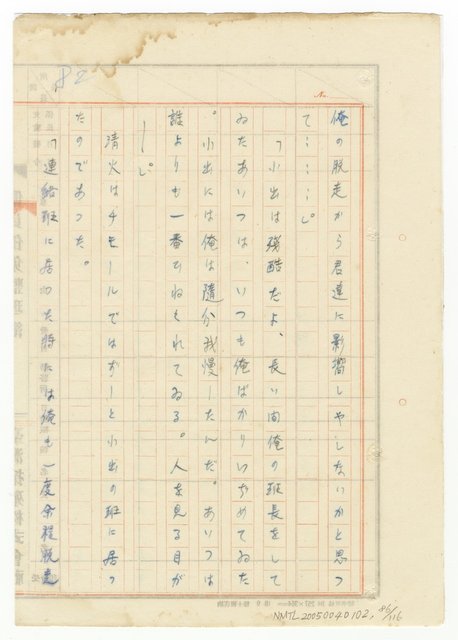 82
No.
俺の脱走から君達に影響しやしないかと思つ
て………』
『小出は残酷だよ、長い間俺の班長をして
ゐたあいつは、いつも俺ばかりいぢめてゐた
。小出には俺は随分我慢したんだ。あいつは
誰よりも一番ひねくれてゐる。人を見る目が
―』
清火はチモールではずーと小出の班に居つ
たのであつた。
『連絡班に居つた時には俺も一度余程脱走
NMTL 20050040102, 86/116